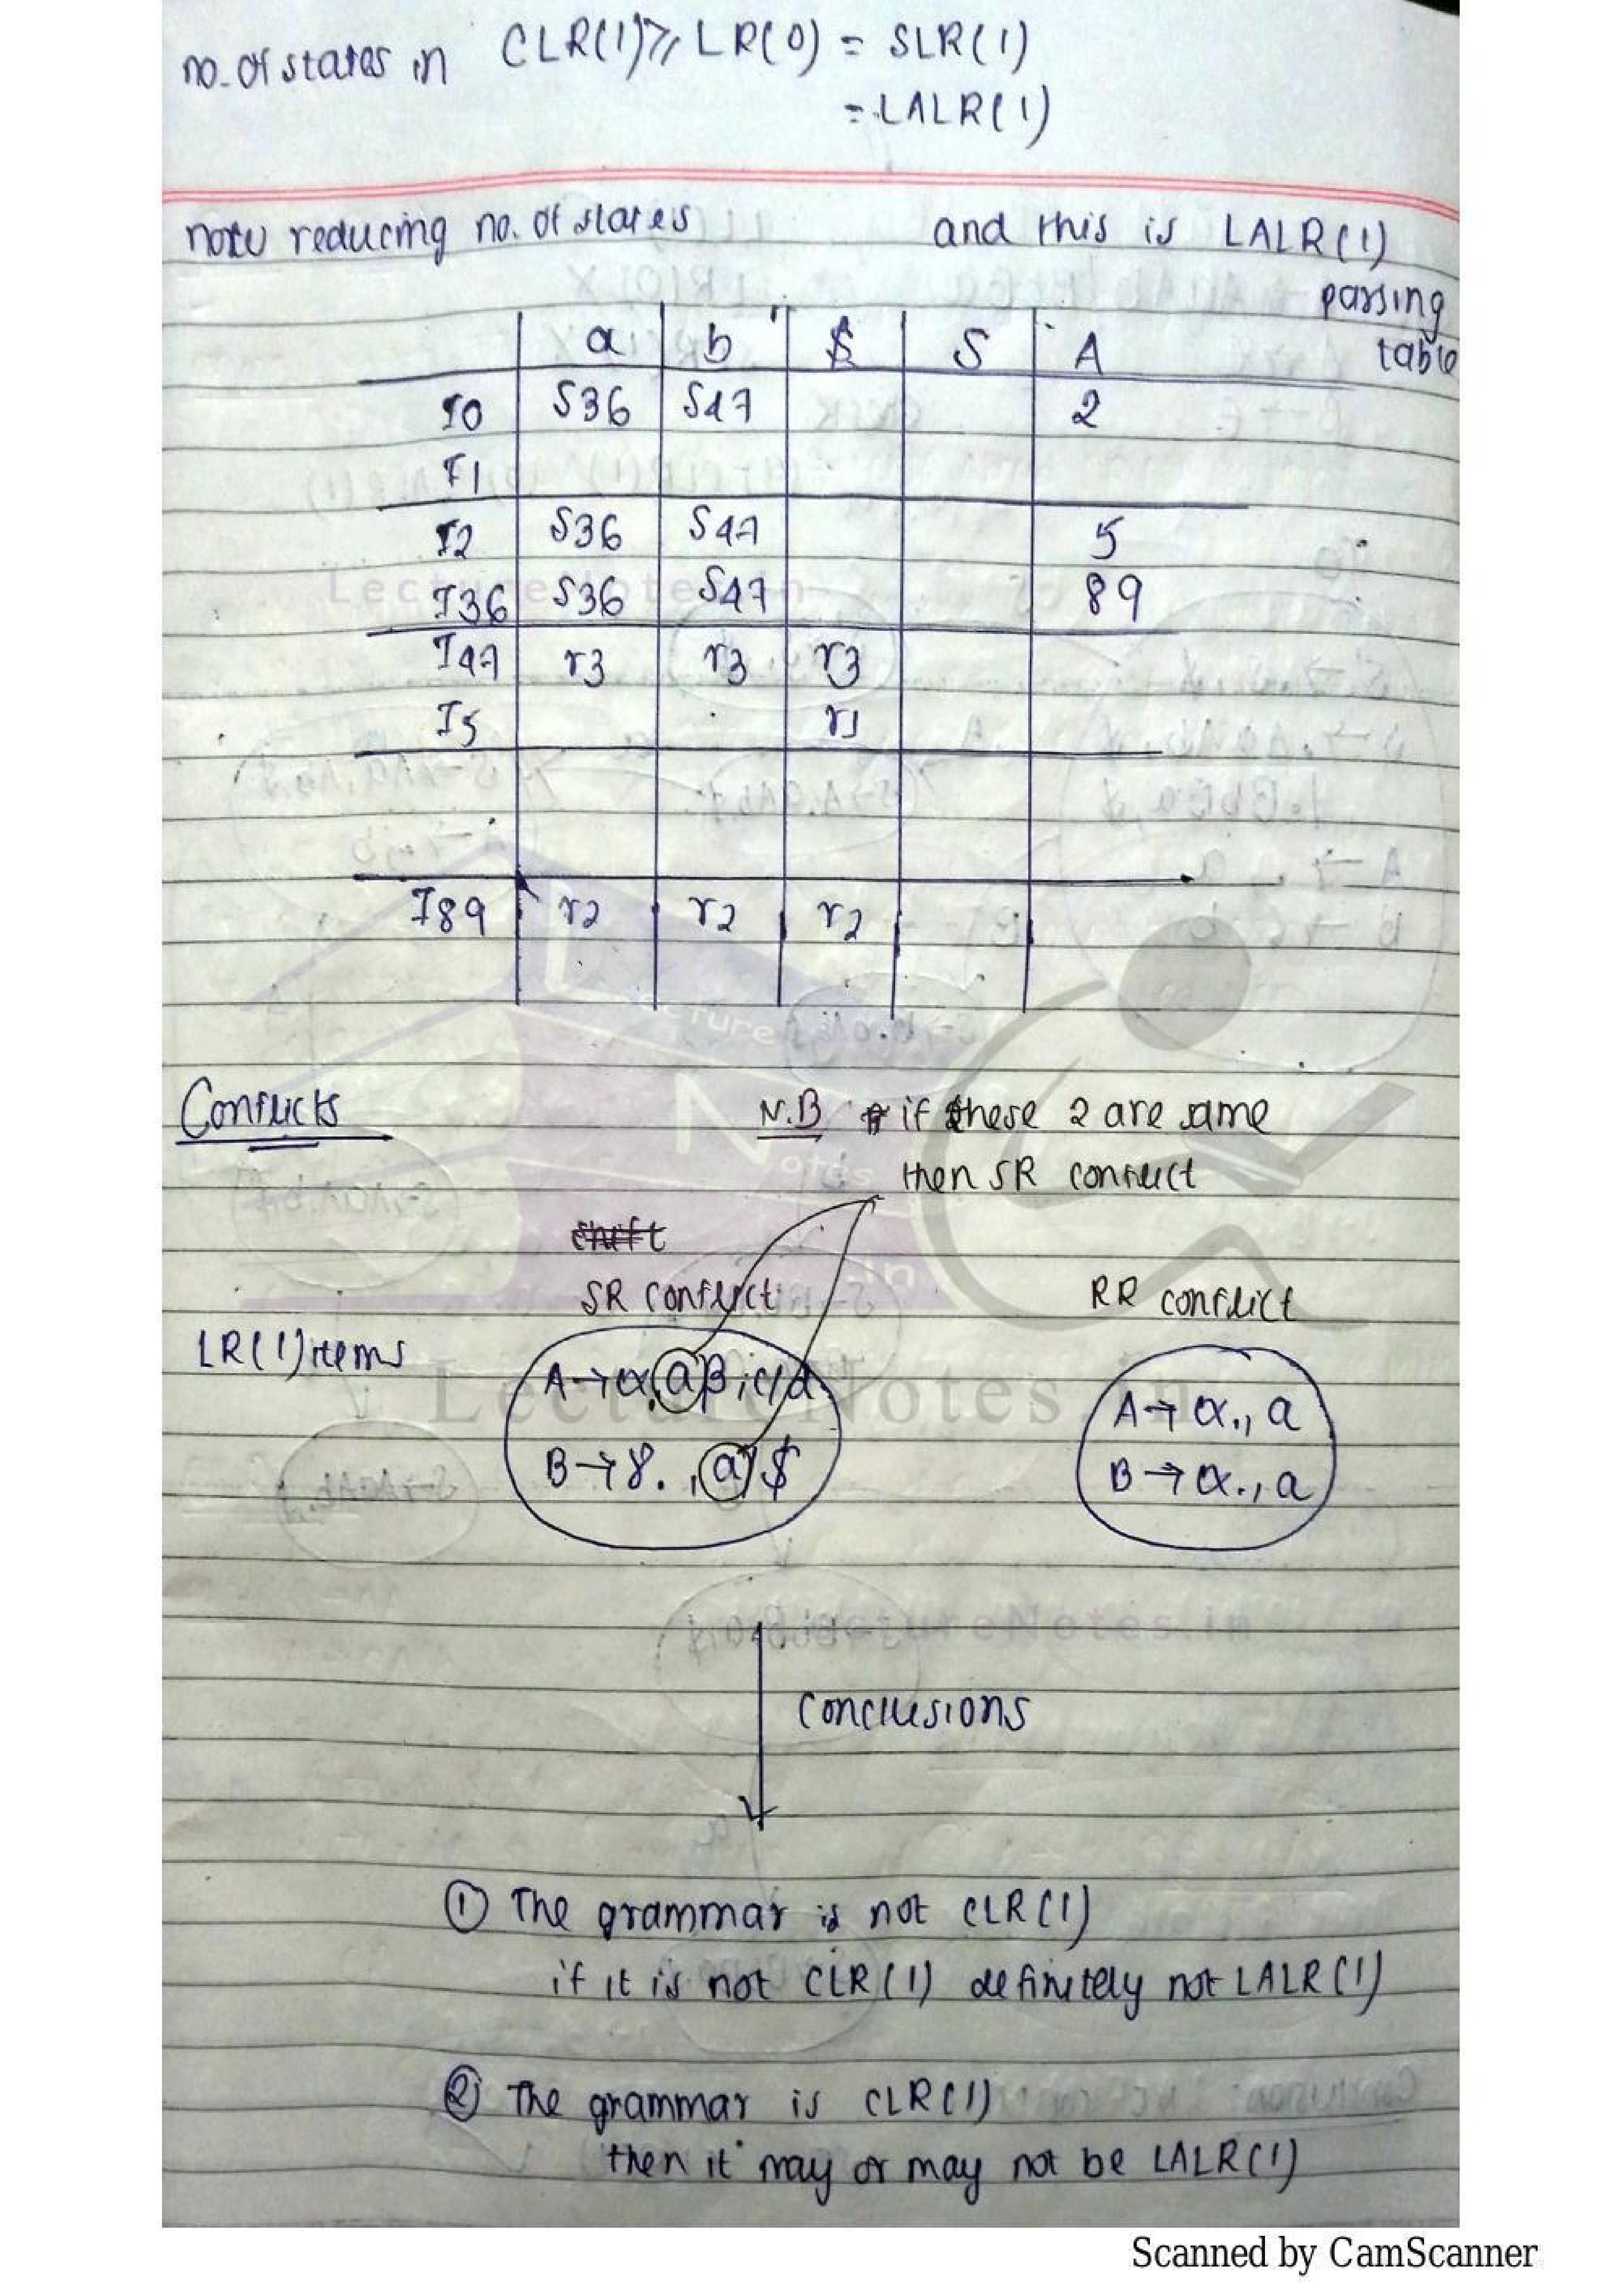 no. of states in CLR(1) ⩾ LR(0) = SLR(1)
= LALR(1)
now reducing no. of states and this is LALR(1)
parsing
table
a b $ S A
I0 S36 S47 2
I1
I2 S36 S47 5
I36 S36 S47 89
I47 r3 r3 r3
I5 r1
I89 r2 r2 r2
Conflicts
N.B if these 2 are same
then SR conflict
shift
SR conflict RR conflict
LR(1) items
A → α.aβ, c/d
B → γ. , a/$
A → α., a
B → α., a
conclusions
① The grammar is not CLR(1)
if it is not CLR(1) definitely not LALR(1)
② The grammar is CLR(1)
then it may or may not be LALR(1)
LectureNotes.in
LectureNotes.in
LectureNotes.in
Lecture
Notes
.in
Scanned by CamScanner